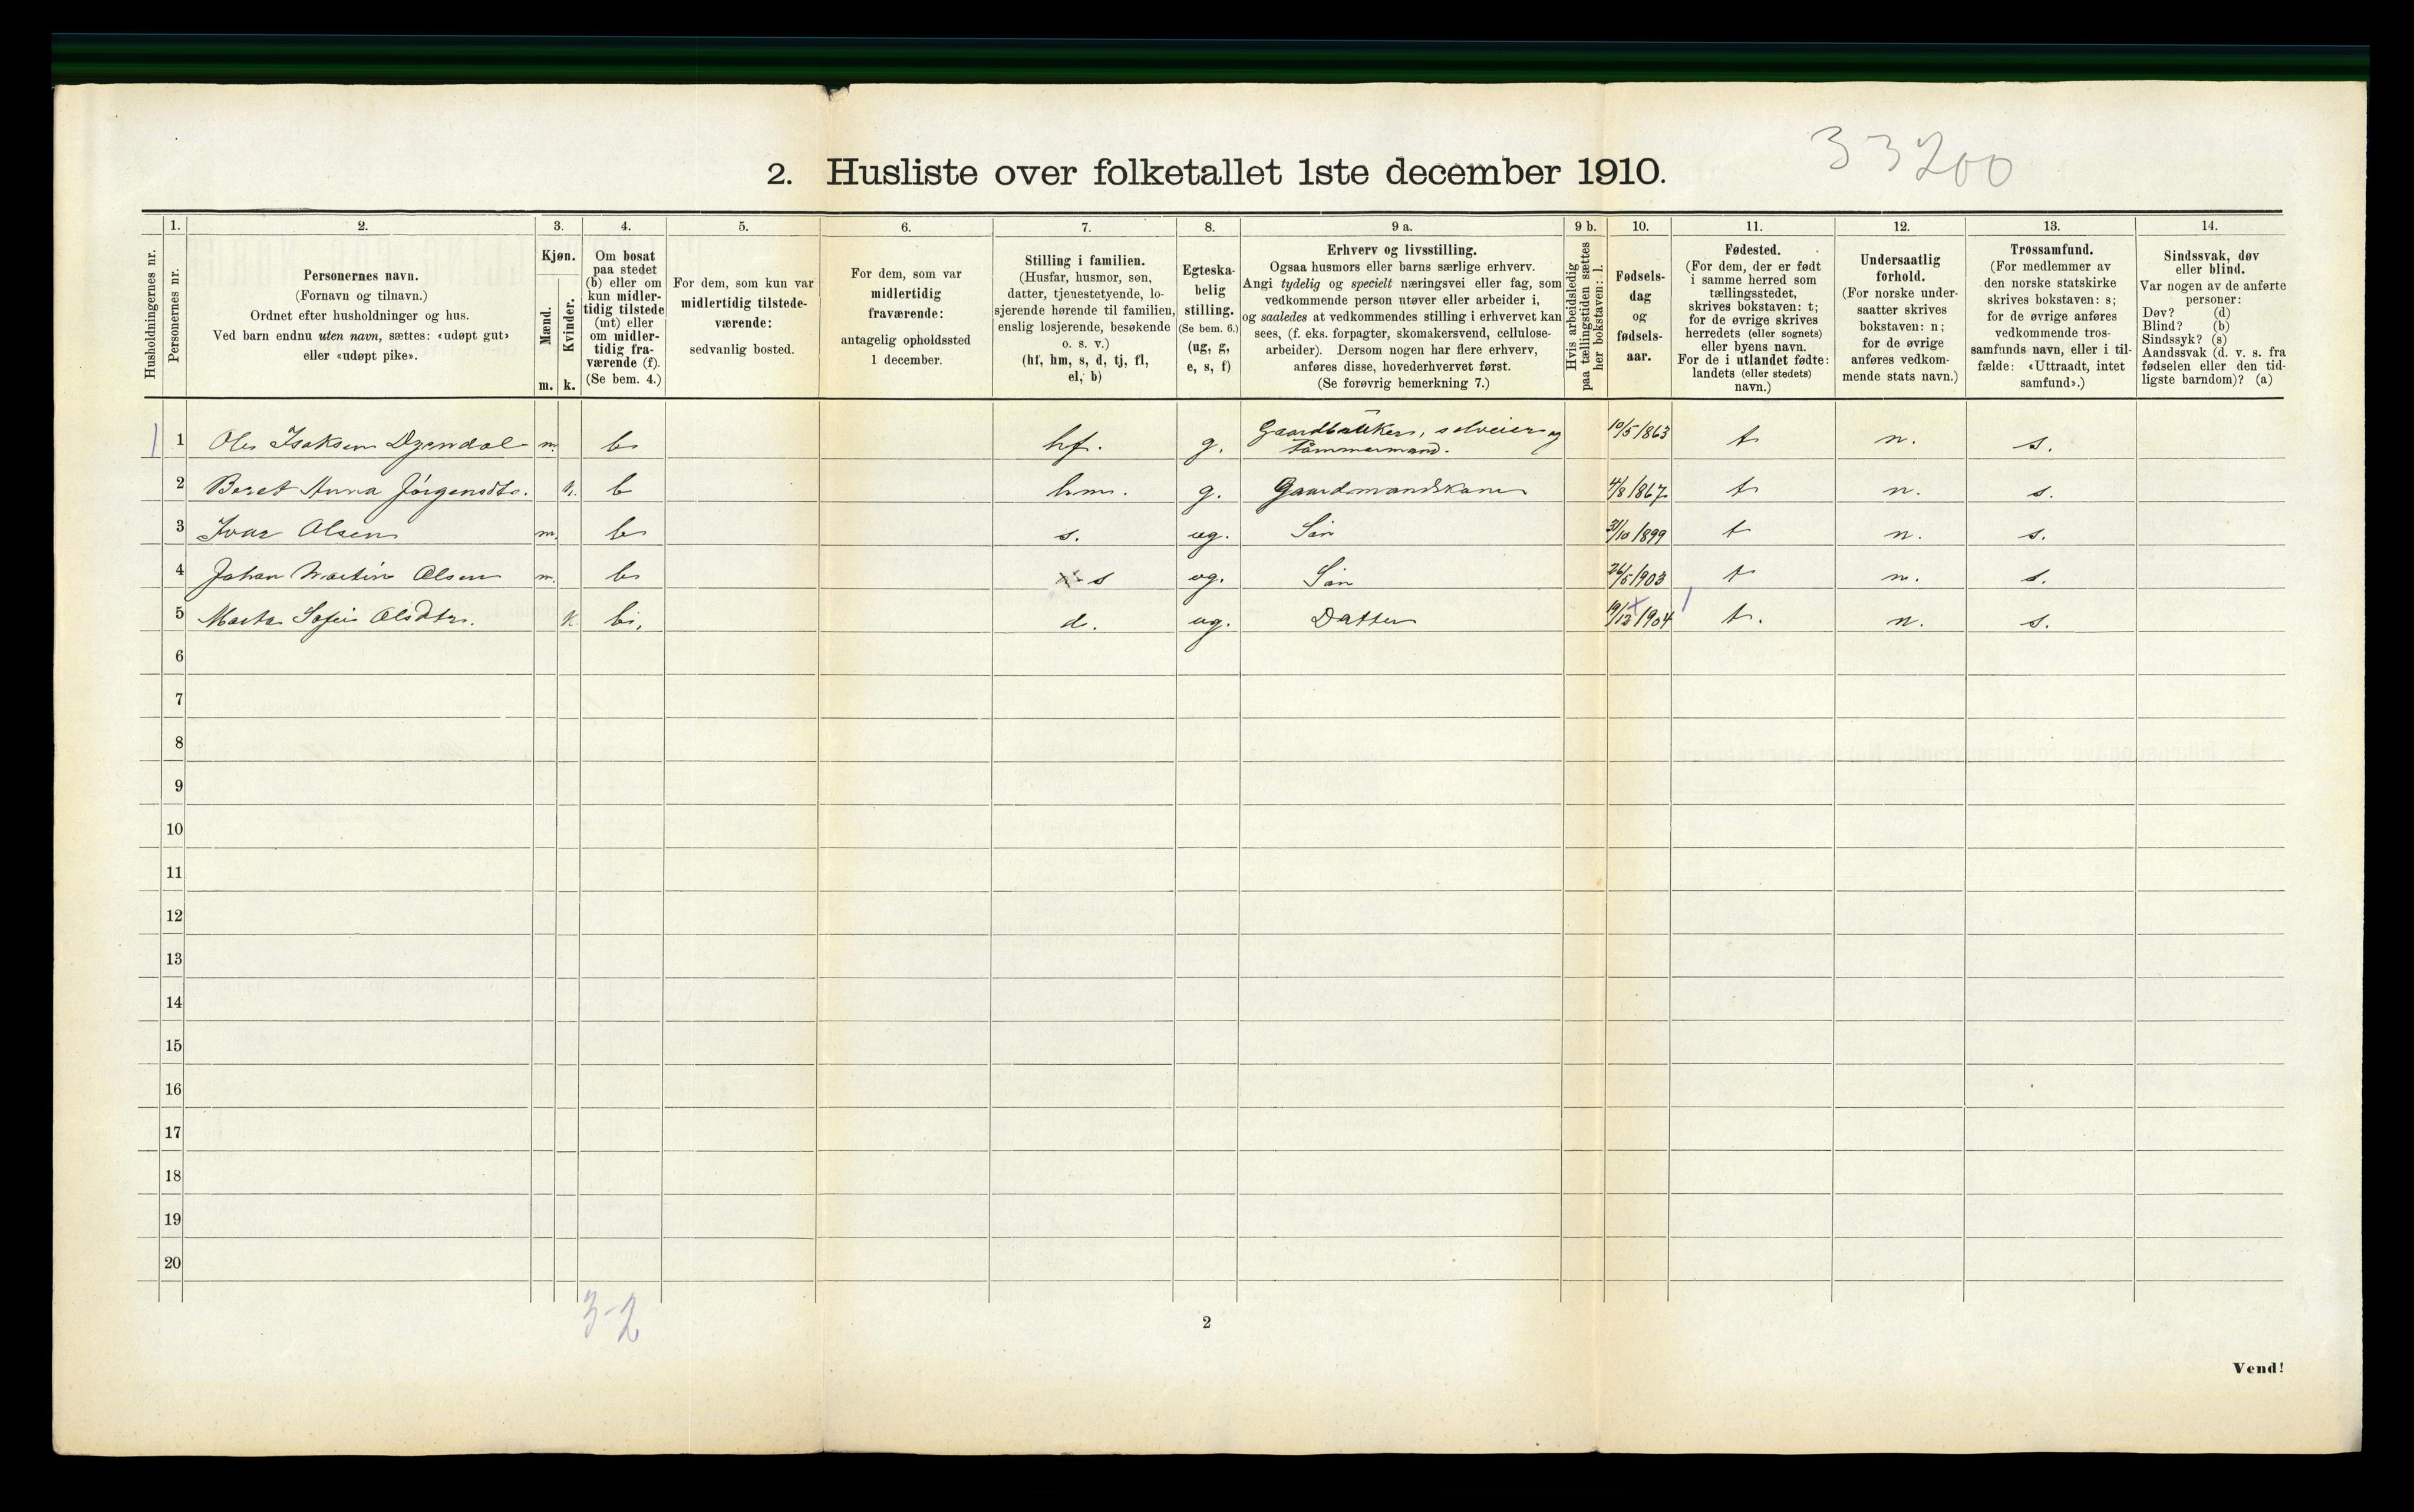 33200
2. Husliste over folketallet 1ste december 1910.
1. 2. 3. 4. 5. 6. 7. 8. 9 a. 9 b. 10. 11. 12. 13. 14.
Husholdningernes nr.
Personernes nr.
Personernes navn.
(Fornavn og tilnavn.)
Ordnet efter husholdninger og hus.
Ved barn endnu uten navn, sættes: «udøpt gut»
eller «udøpt pike».
Kjøn.
Mænd.
Kvinder.
m. k.
Om bosat
paa stedet
(b) eller om
kun midler-
tidig tilstede
(mt) eller
om midler-
tidig fra-
værende (f).
(Se bem. 4.)
For dem, som kun var
midlertidig tilstede-
værende:
sedvanlig bosted.
For dem, som var
midlertidig
fraværende:
antagelig opholdssted
1 december.
Stilling i familien.
(Husfar, husmor, søn,
datter, tjenestetyende, lo-
sjerende hørende til familien,
enslig losjerende, besøkende
o. s. v.)
(hf, hm, s, d, tj, fl,
el, b)
Egteska-
belig
stilling.
(Se bem. 6.)
(ug, g,
e, s, f)
Erhverv og livsstilling.
Ogsaa husmors eller barns særlige erhverv.
Angi tydelig og specielt næringsvei eller fag, som
vedkommende person utøver eller arbeider i,
og saaledes at vedkommendes stilling i erhvervet kan
sees, (f. eks. forpagter, skomakersvend, cellulose-
arbeider). Dersom nogen har flere erhverv,
anføres disse, hovederhvervet først.
(Se forøvrig bemerkning 7.)
Hvis arbeidsledig
paa tællingstiden sættes
her bokstaven: l.
Fødsels-
dag
og
fødsels-
aar.
Fødested.
(For dem, der er født
i samme herred som
tællingsstedet,
skrives bokstaven: t;
for de øvrige skrives
herredets (eller sognets)
eller byens navn.
For de i utlandet fødte:
landets (eller stedets)
navn.)
Undersaatlig
forhold.
(For norske under-
saatter skrives
bokstaven: n;
for de øvrige
anføres vedkom-
mende stats navn.)
Trossamfund.
(For medlemmer av
den norske statskirke
skrives bokstaven: s;
for de øvrige anføres
vedkommende tros-
samfunds navn, eller i til-
fælde: «Uttraadt, intet
samfund».)
Sindssvak, døv
eller blind.
Var nogen av de anførte
personer:
Døv? (d)
Blind? (b)
Sindssyk? (s)
Aandssvak (d. v. s. fra
fødselen eller den tid-
ligste barndom)? (a)
1 1 Ole Isaksen m. b hf. g. Gaardbruker, selveier og tømmermand. 10/5 1863 t n. s.
2 Beret Anna Jørgensdtr. k. b hm. g. Gaardmandskone 4/8 1867 t n. s.
3 Ivar Olsen m. b s. ug. Søn 31/10 1899 t n. s.
4 Johan Martin Olsen m. b s ug. Søn 26/5 1903 t n. s.
5 Marta Sofie Olsdtr. k. b. d. ug. Datter 19/12 1904 t. n. s.
6
7
8
9
10
11
12
13
14
15
16
17
18
19
20
3-2
2
Vend!